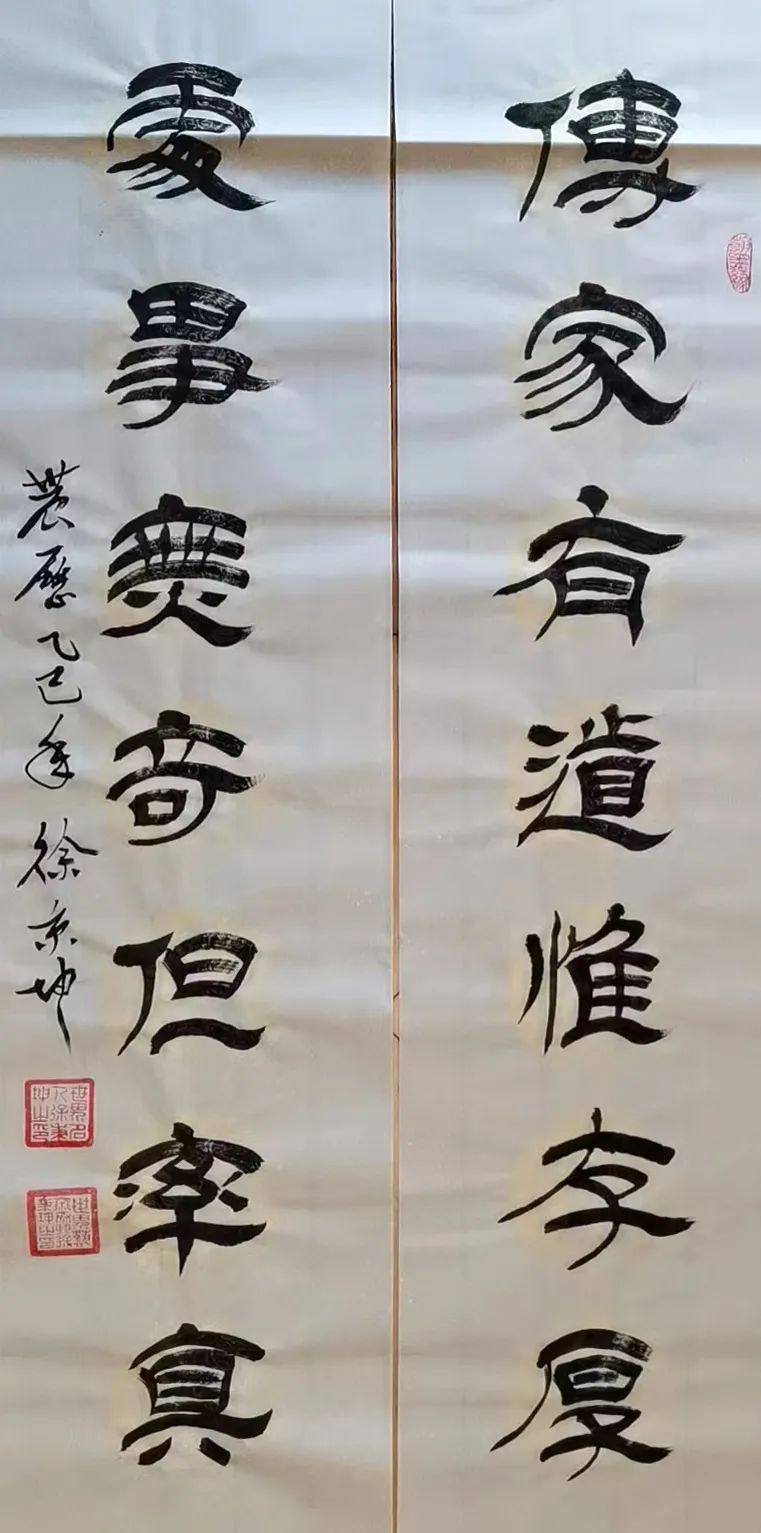 傳家有道惟存厚
處事無奇但率真
農歷乙巳年 徐东坤